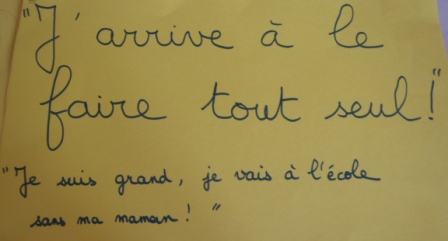 "J'arrive à le
faire tout seul!"
"Je suis grand, je vais à l'école
sans ma maman! "